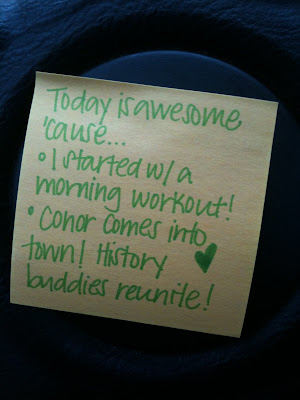 Today is awesome
'cause...
• I started w/ a
morning workout!
• Conor comes into
town! History
buddies reunite!